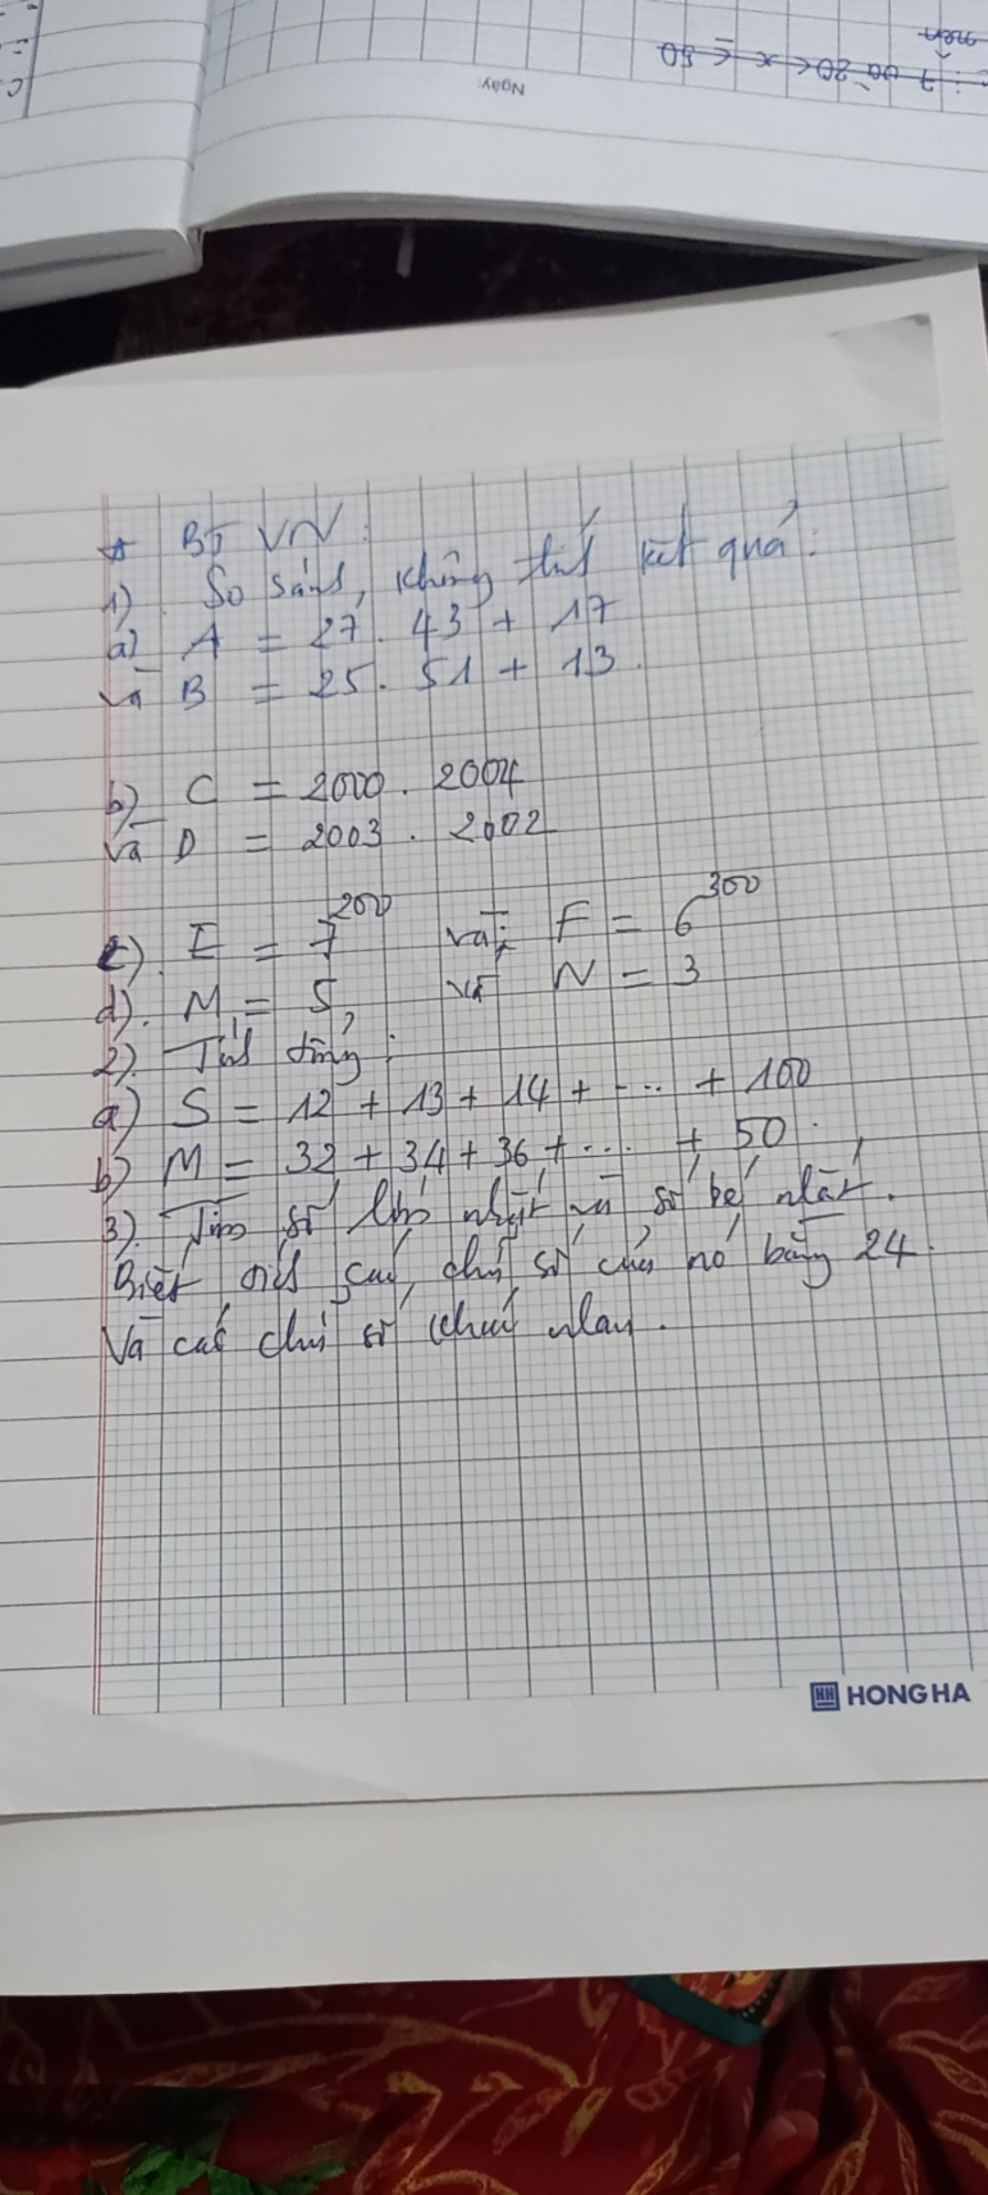 nên
: 7 và 20 < x ≤ 50
Ngày:
* BT VN:
1). So sánh, không tính kết quả:
a) A = 27. 43 + 17
và B = 25. 51 + 13.
b) C = 2000. 2004
và D = 2003. 2002
c). E = 7²⁰⁰ và: F = 6³⁰⁰
d). M = 5, và N = 3
2). Tính tổng:
a) S = 12 + 13 + 14 + .... + 100
b) M = 32 + 34 + 36 + .... + 50.
3). Tìm số lớn nhất và số bé nhất.
Biết tích các chữ số của nó bằng 24.
Và các chữ số khác nhau.
HH HONG HA